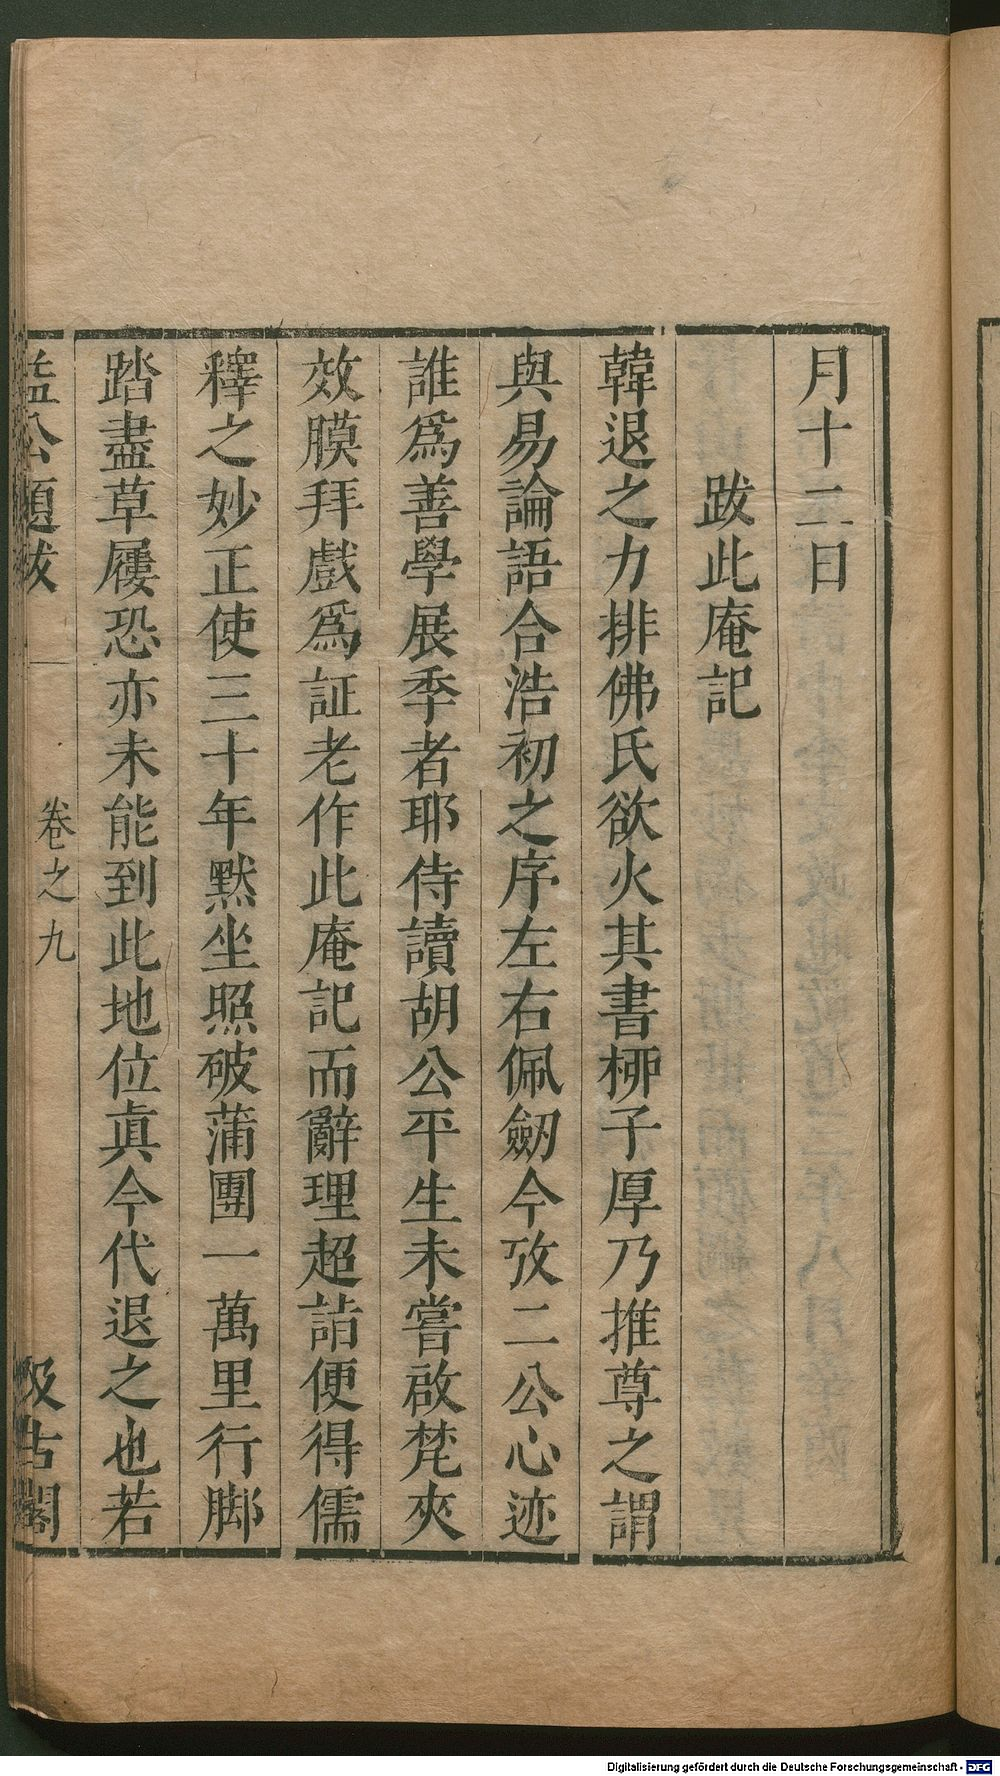 月十二日
跋此庵記
韓退之力排佛氏欲火其書桺子厚乃推尊之謂
與易論語合浩初之序左右佩劒今攷二公心迹
誰爲善學展季者耶侍讀胡公平生未嘗啟梵夾
效膜拜戲爲証老作此庵記而辭理超詣便得儒
釋之妙正使三十年默坐照破蒲團一萬里行脚
踏盡草屨恐亦未能到此地位眞今代退之也若
益公題跋
卷之九
汲古閣
Digitalisierung gefördert durch die Deutsche Forschungsgemeinschaft - DFG